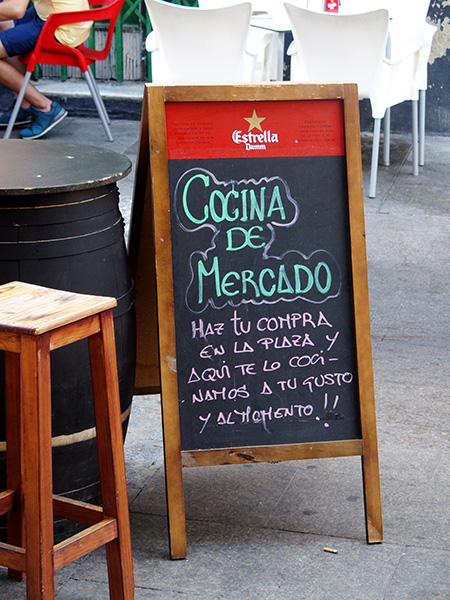 Estrella
Damm
COCINA
DE
MERCADO
HAZ TU COMPRA
EN LA PLAZA Y
AQUI TE LO COCI-
NAMOS A TU GUSTO
Y AL MOMENTO!!